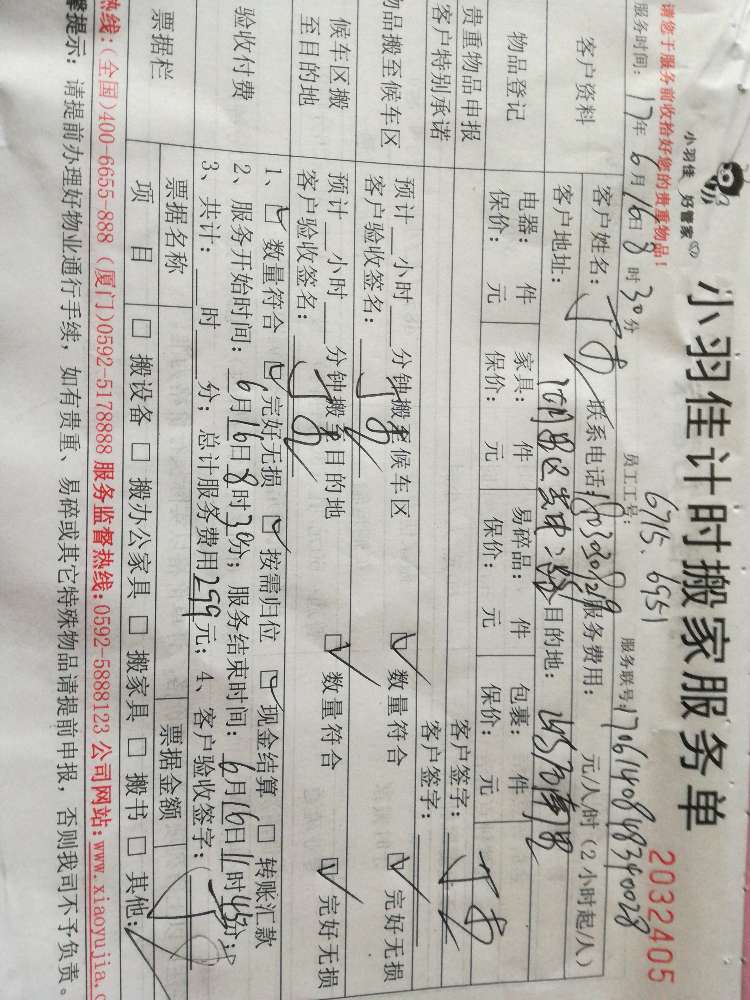 小羽佳计时搬家服务单
2032405
小羽佳 好管家
员工工号: 6715、6951
服务联号: 1706140848340028
请您于服务前收拾好您的贵重物品!
服务时间: 17年6月16日8时30分
客户资料
客户姓名:
联系电话:
服务费用: 元/人/时(2小时起/人)
客户地址:
目的地:
物品登记
电器: 件 家具: 件 易碎品: 件 包裹: 件
保价: 元 保价: 元 保价: 元 保价: 元
贵重物品申报
客户特别承诺
客户签字:
客户签字:
物品搬至候车区
预计__小时__分钟搬至候车区 ☑ 数量符合 ☑ 完好无损
客户验收签名:
候车区搬
至目的地
预计__小时__分钟搬至目的地 ☑ 数量符合 ☑ 完好无损
客户验收签名:
验收付费
1、☑ 数量符合 ☑ 完好无损 ☑ 按需归位 ☑ 现金结算 □ 转账汇款
2、服务开始时间: 6月16日8时30分; 服务结束时间: 6月16日11时45分;
3、共计: __时__分; 总计服务费用299元; 4、客户验收签字:
票据栏
票据名称
票据金额
项 目
□ 搬设备 □ 搬办公家具 □ 搬家具 □ 搬书 □ 其他:
热线:(全国)400-6655-888 (厦门)0592-5178888 服务监督热线:0592-5888123 公司网站:www.xiaoyujia.c
馨提示: 请提前办理好物业通行手续, 如有贵重、易碎或其它特殊物品请提前申报, 否则我司不予负责。